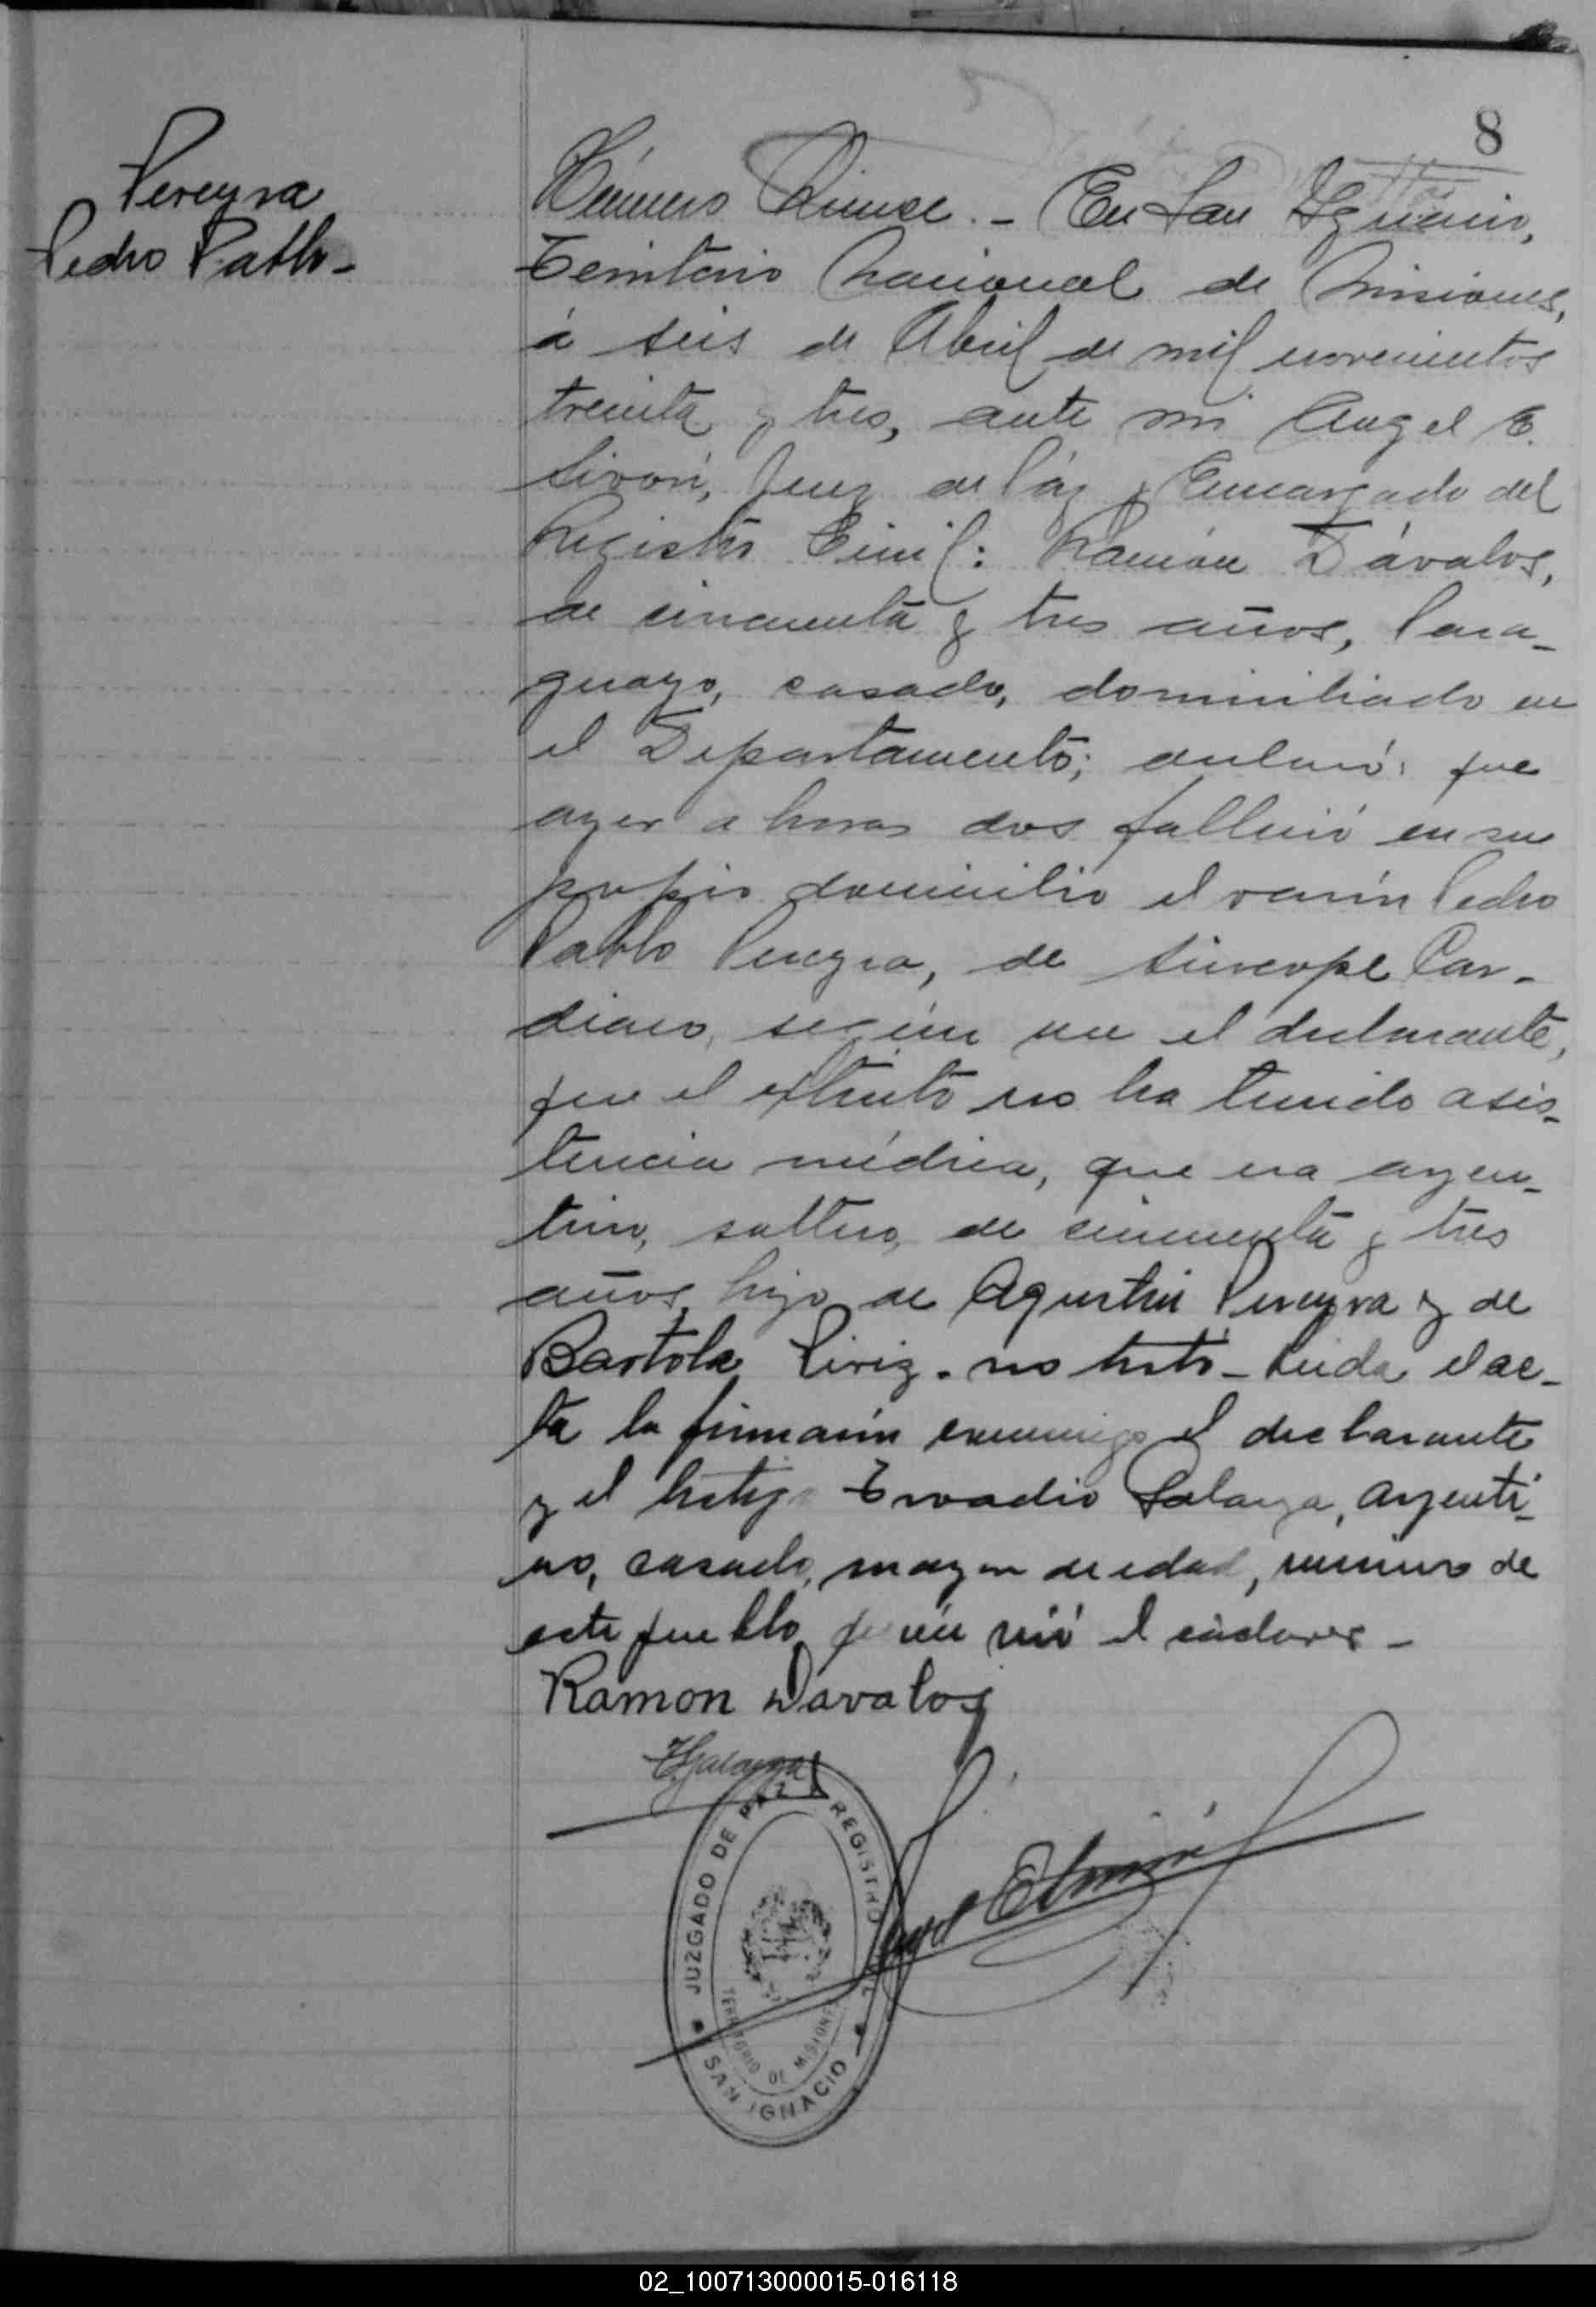 8
Pereyra
Pedro Pablo -
Número Quince. - En San Ignacio,
Territorio Nacional de Misiones,
á seis de Abril de mil novecientos
treinta y tres, ante mi Angel E.
Sivori, Juez de Páz y Encargado del
Registro Civil: Ramón Dávalos,
de cincuenta y tres años, Para-
guayo, casado, domiciliado en
el Departamento; declaró: que
ayer a horas dos falleció en su
propio domicilio el varón Pedro
Pablo Pereyra, de sincope Car-
diaco, según el declarante,
que el extinto no ha tenido asis-
tencia médica, que era argen-
tino, soltero, de cincuenta y tres
años, hijo de Agustin Pereyra y de
Bartola Piriz. no testó - Leida el ac-
ta la firmarón conmigo el declarante
y el testigo Galarza, argenti-
no, casado, mayor de edad, vecino de
este pueblo quién vió el cadaver -
Ramon Davalos
E Galarza
JUZGADO DE PAZ REGISTRO CIVIL
TERRITORIO DE MISIONES
SAN IGNACIO
Angel E Sivori
02_100713000015-016118